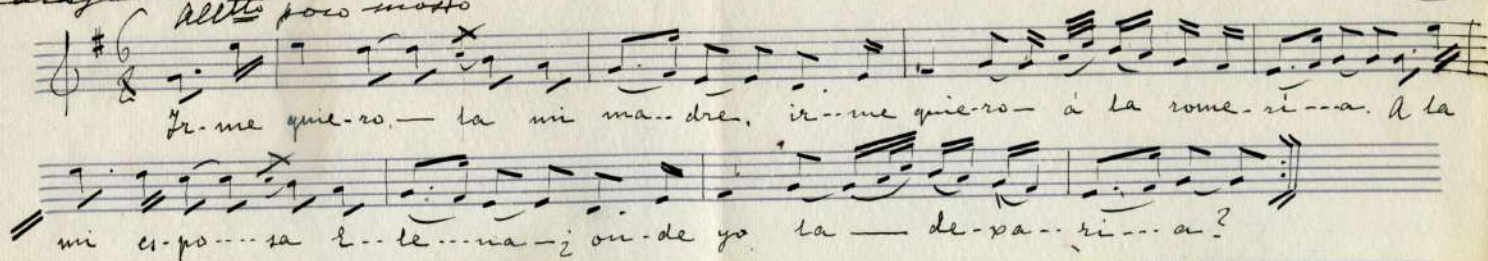 Alltto poco mosso
Ir-me quie-ro,— la mi ma--dre, ir--me quie-ro— á la rome-rí---a. A la
mi es-po----sa E--le---na-¿ on-de yo la — de-xa--rí---a?